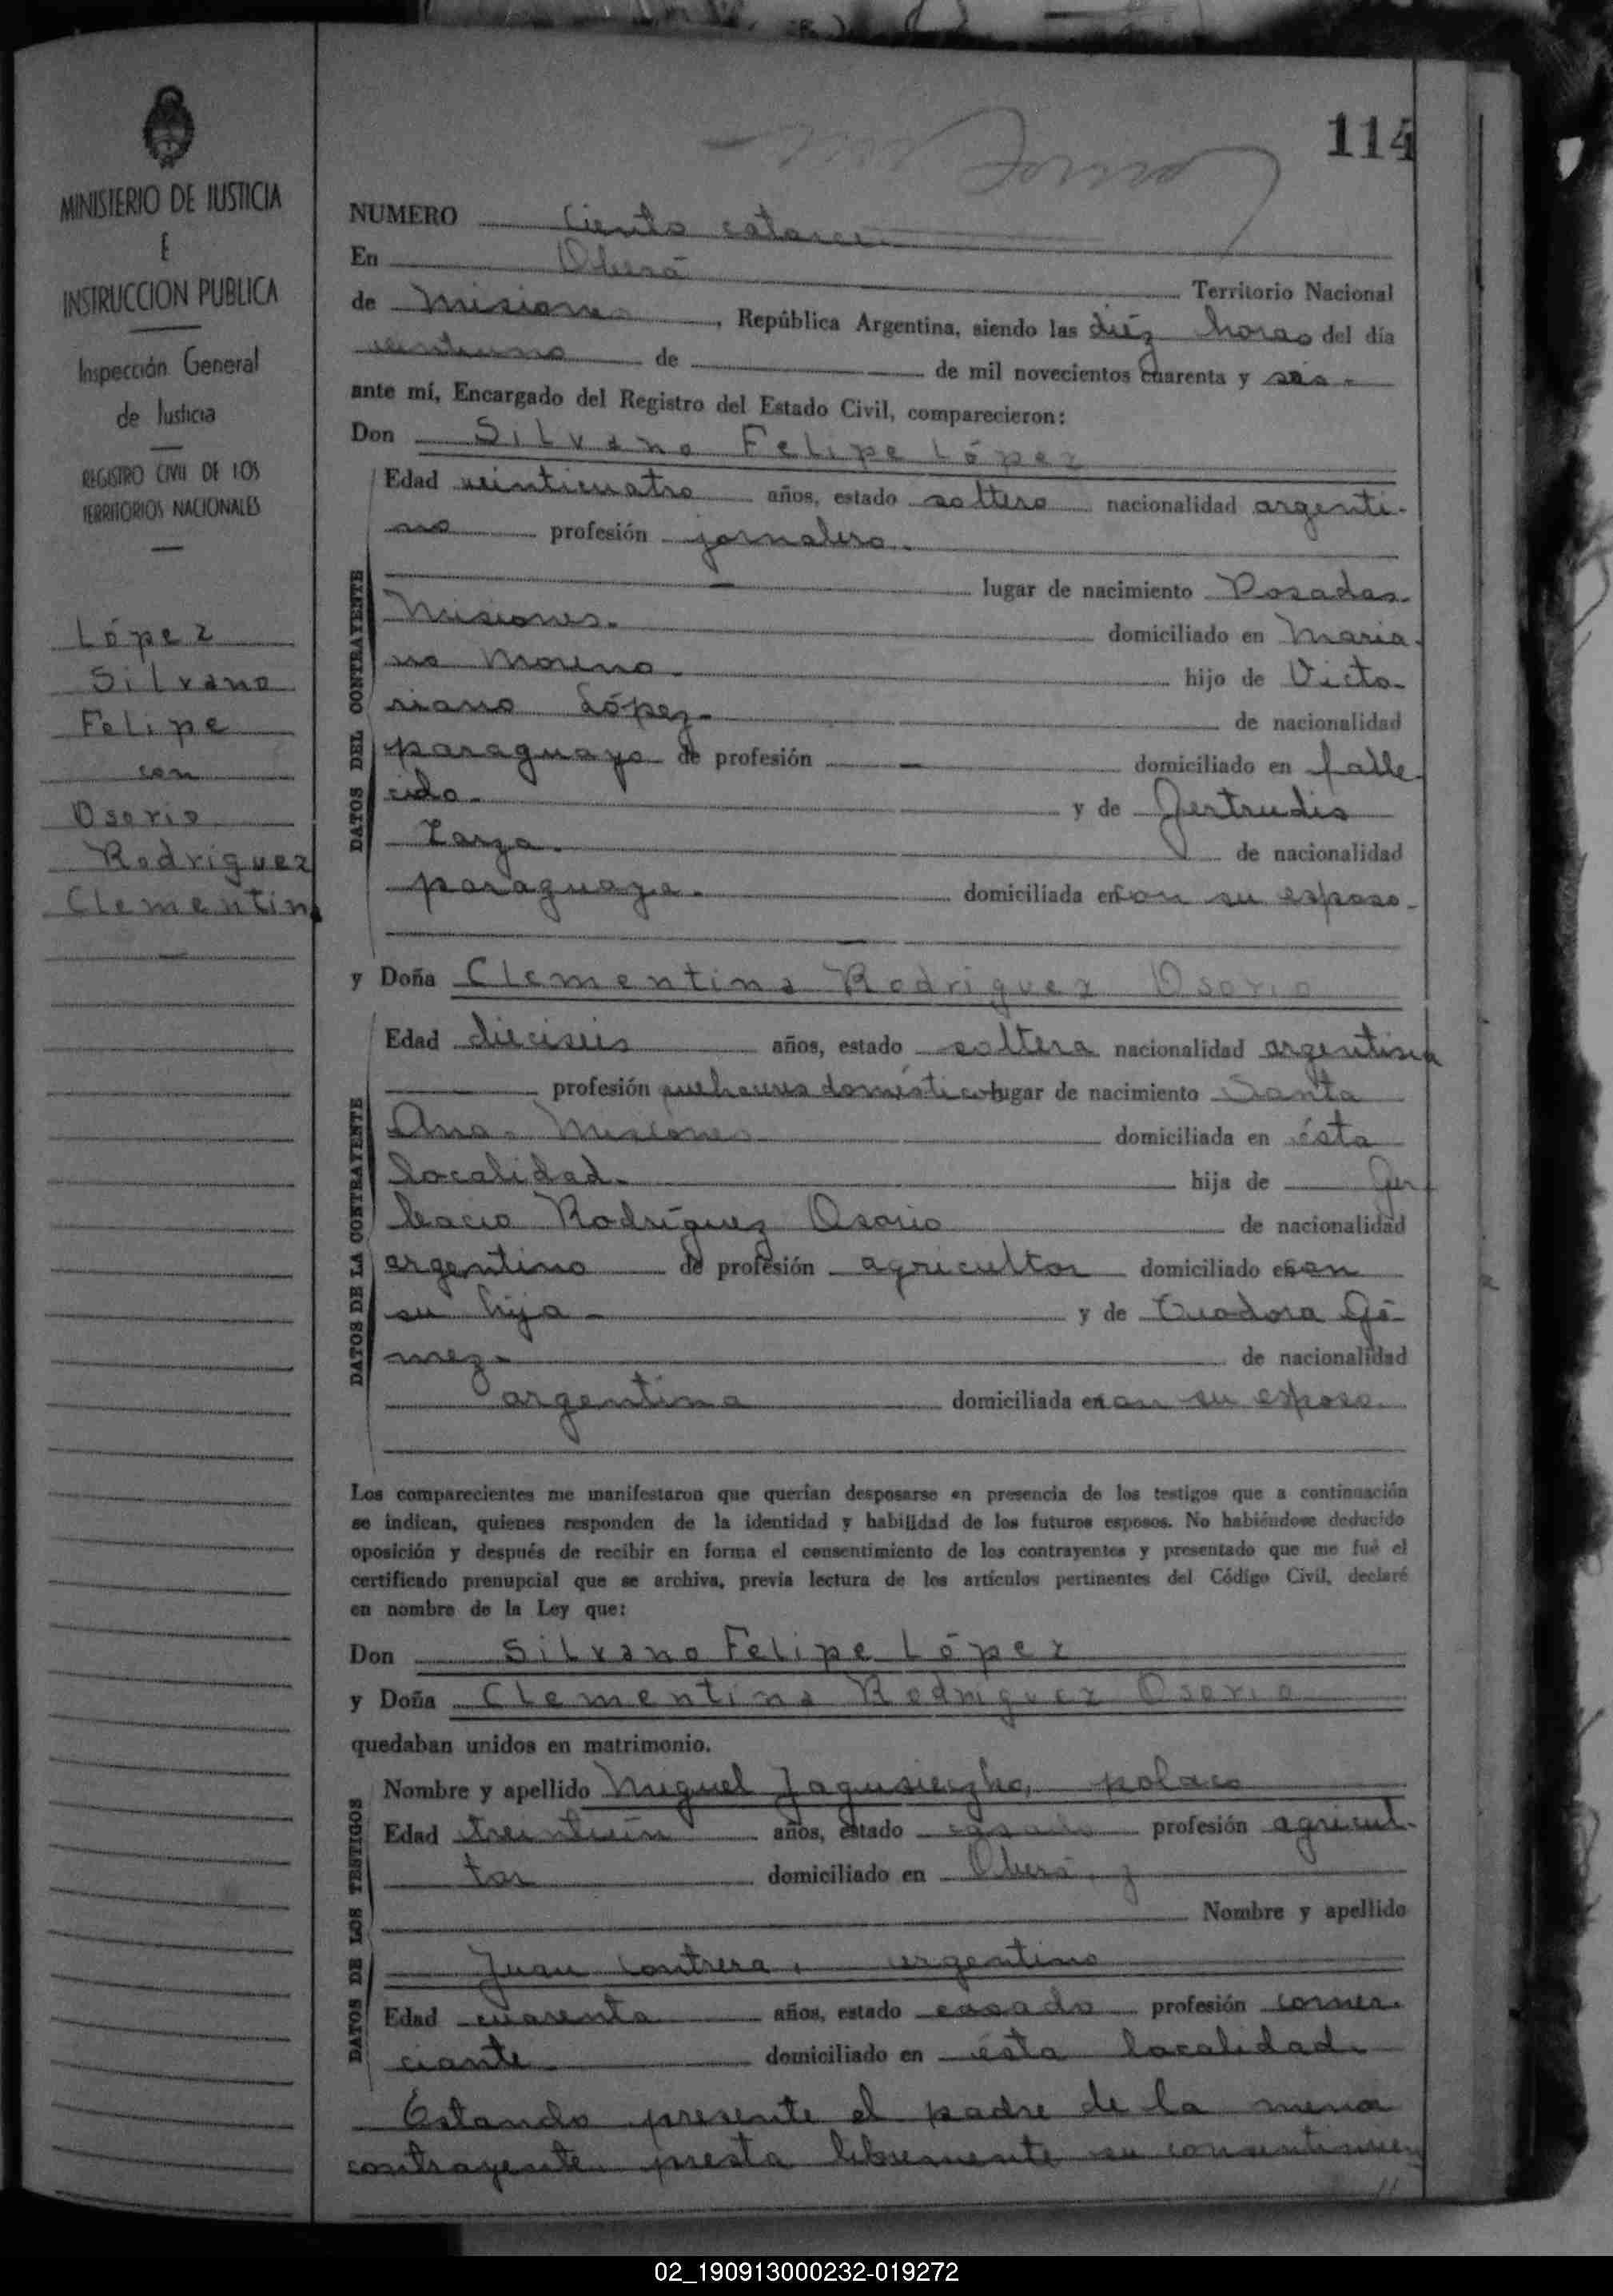 MINISTERIO DE JUSTICIA
E
INSTRUCCION PUBLICA
Inspección General
de Justicia
REGISTRO CIVIL DE LOS
TERRITORIOS NACIONALES
López
Silvano
Felipe
con
Osorio
Rodriguez
Clementina
114
NUMERO Ciento catorce
En Oberá
Territorio Nacional
de Misiones, República Argentina, siendo las diéz horas del día
veintiuno de — de mil novecientos cuarenta y seis.
ante mí, Encargado del Registro del Estado Civil, comparecieron:
Don Silvano Felipe López
Edad veinticuatro años, estado soltero nacionalidad argenti-
no profesión jornalero.
— lugar de nacimiento Posadas.
Misiones. domiciliado en Maria-
no Moreno. hijo de Victo-
riano López. de nacionalidad
paraguayo de profesión — domiciliado en falle-
cido. y de Gertrudis
Zarza. de nacionalidad
paraguaya. domiciliada en con su esposo.
—
y Doña Clementina Rodriguez Osorio
Edad dieciseis años, estado soltera nacionalidad argentina
profesión quehaceres domésticos lugar de nacimiento Santa
Ana. Misiones domiciliada en ésta
localidad. hija de Ger
bacio Rodríguez Osorio de nacionalidad
argentino de profesión agricultor domiciliado en con
su hija - y de Teodora Gó-
mez. de nacionalidad
argentina domiciliada en con su esposo.
DATOS DEL CONTRAYENTE
DATOS DE LA CONTRAYENTE
Los comparecientes me manifestaron que querían desposarse en presencia de los testigos que a continuación
se indican, quienes responden de la identidad y habilidad de los futuros esposos. No habiéndose deducido
oposición y después de recibir en forma el consentimiento de los contrayentes y presentado que me fué el
certificado prenupcial que se archiva, previa lectura de los artículos pertinentes del Código Civil, declaré
en nombre de la Ley que:
Don Silvano Felipe López
y Doña Clementina Rodriguez Osorio
quedaban unidos en matrimonio.
Nombre y apellido Miguel polaco
Edad treintiún años, estado casado profesión agricul-
tor domiciliado en Oberá, y
Nombre y apellido
Juan Contrera, argentino
Edad cuarenta años, estado casado profesión comer-
ciante domiciliado en ésta localidad.
DATOS DE LOS TESTIGOS
Estando presente el padre de la menor
contrayente, presta libremente su consentimien
//
02_190913000232-019272